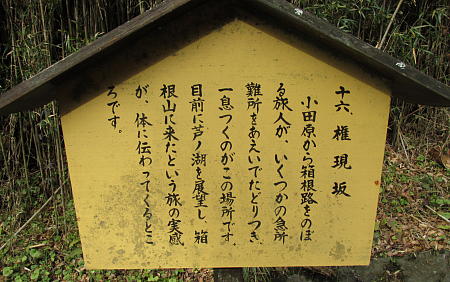 十六、権現坂
小田原から箱根路をのぼ
る旅人が、いくつかの急所
難所をあえいでたどりつき、
一息つくのがこの場所です。
目前に芦ノ湖を展望し、箱
根山に来たという旅の実感
が、体に伝わってくるとこ
ろです。